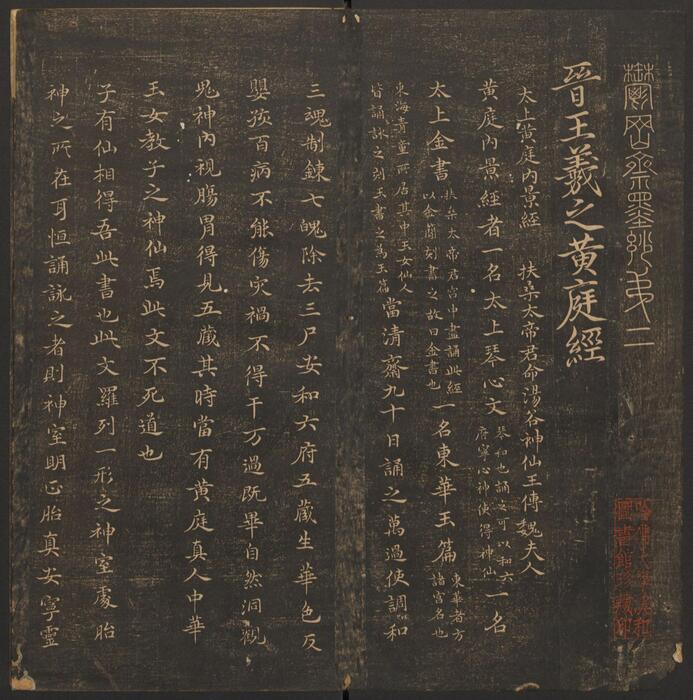 鬱岡齋墨妙第二
晉王羲之黄庭經
太上黄庭内景經 扶桑太帝君命湯谷神仙王傳魏夫人
黄庭内景經者一名太上琴心文琴和也誦之可以和六府寧心神使得神仙一名
太上金書扶桑太帝君宫中盡誦此經以金簡刻書之故曰金書也一名東華玉篇東華者方諸宫名也
東海青童所居其中玉女仙人皆誦詠之刻玉書之為玉篇當清齋九十日誦之萬過使調和
三魂制鍊七魄除去三尸安和六府五藏生華色反
嬰孩百病不能傷灾禍不得干万過既畢自然洞觀
鬼神内視膓胃得見五藏其時當有黄庭真人中華
玉女教子之神仙焉此文不死道也
子有仙相得吾此書也此文羅列一形之神室處胎
神之所在耳恒誦詠之者則神室明正胎真安寧靈